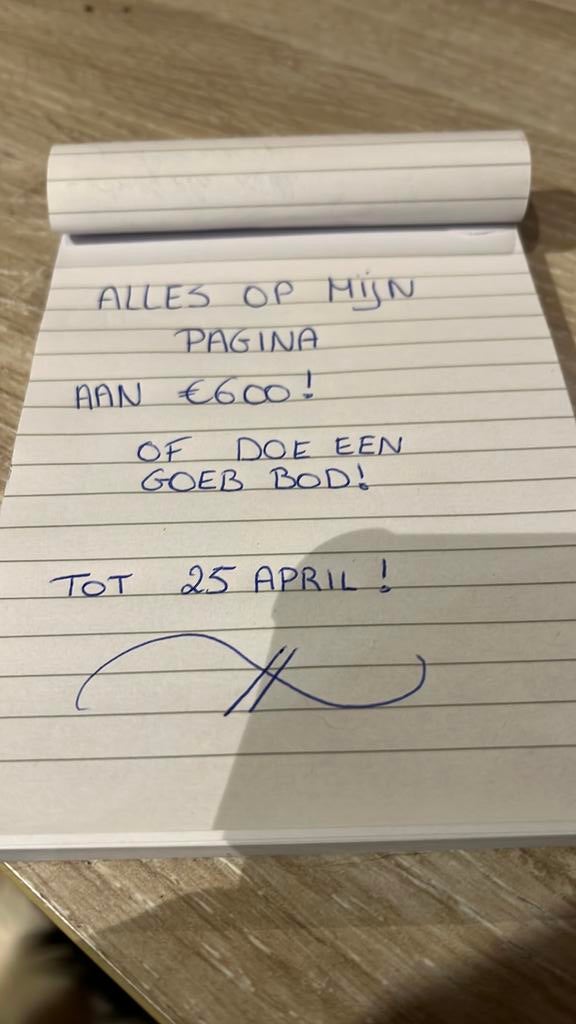 ALLES OP MIJN
PAGINA
AAN €600!
OF DOE EEN
GOEB BOD!
TOT 25 APRIL!